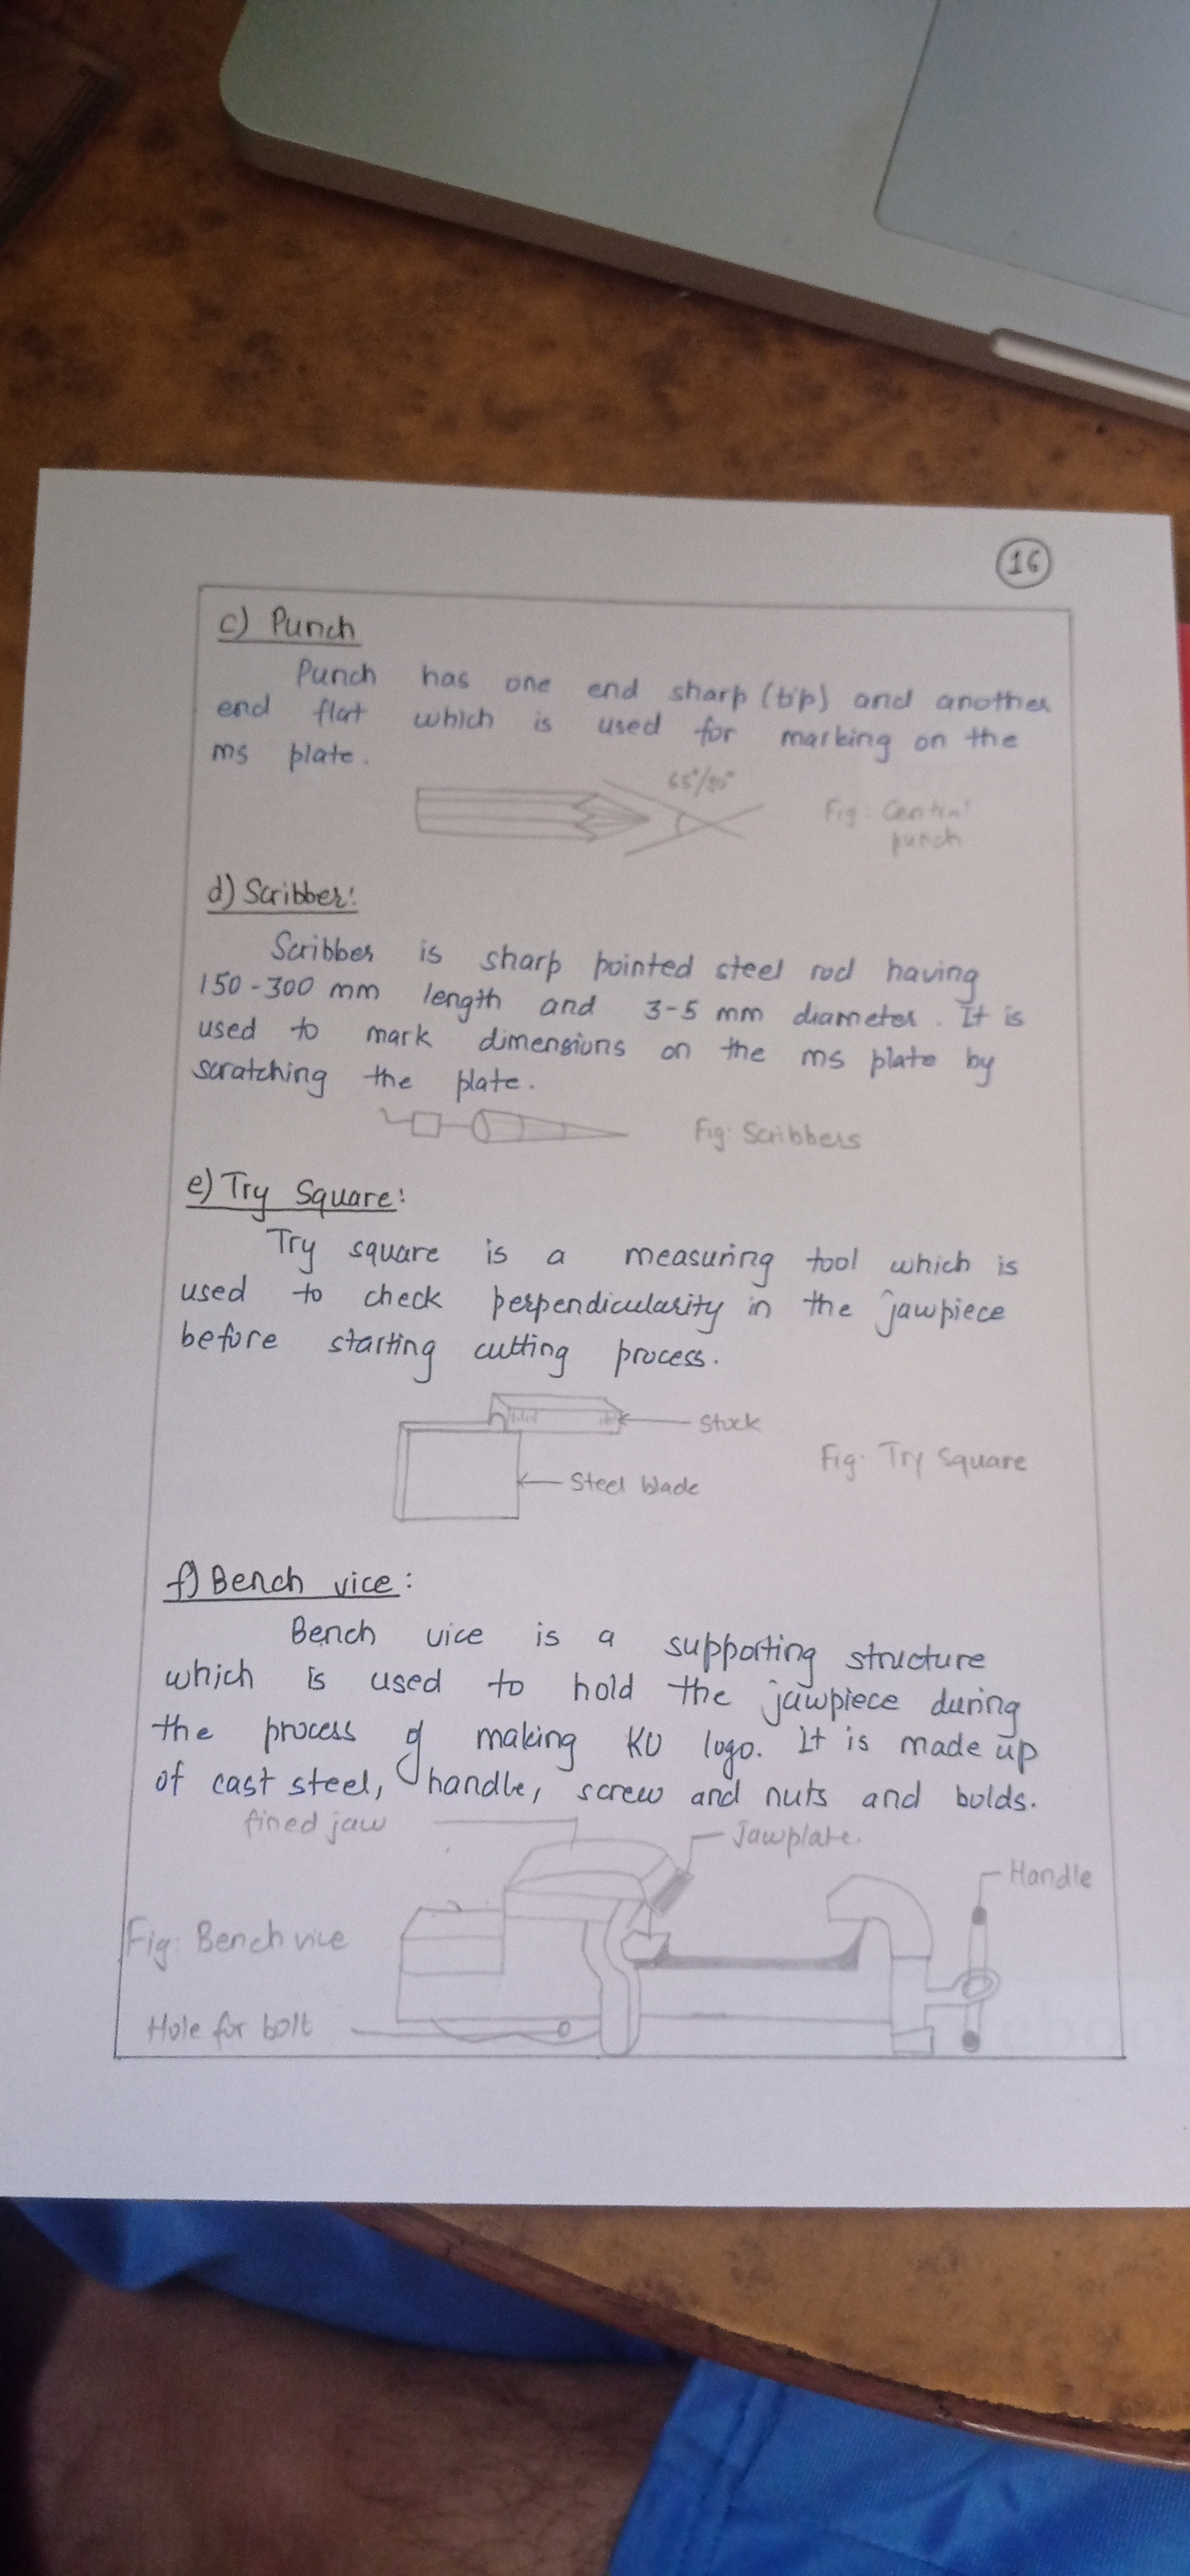 16
c) Punch
Punch has one end sharp (tip) and another
end flat which is used for marking on the
ms plate.
65°/90°
Fig: Central
punch
d) Scribber:
Scribber is sharp pointed steel rod having
150-300 mm length and 3-5 mm diameter. It is
used to mark dimensions on the ms plate by
scratching the plate.
Fig: Scribbers
e) Try Square:
Try square is a measuring tool which is
used to check perpendicularity in the jawpiece
before starting cutting process.
Stock
Steel blade
Fig: Try Square
f) Bench vice:
Bench vice is a supporting structure
which is used to hold the jawpiece during
the process of making KU logo. It is made up
of cast steel, handle, screw and nuts and bolds.
fined jaw
Jawplate.
Handle
Fig: Bench vice
Hole for bolt